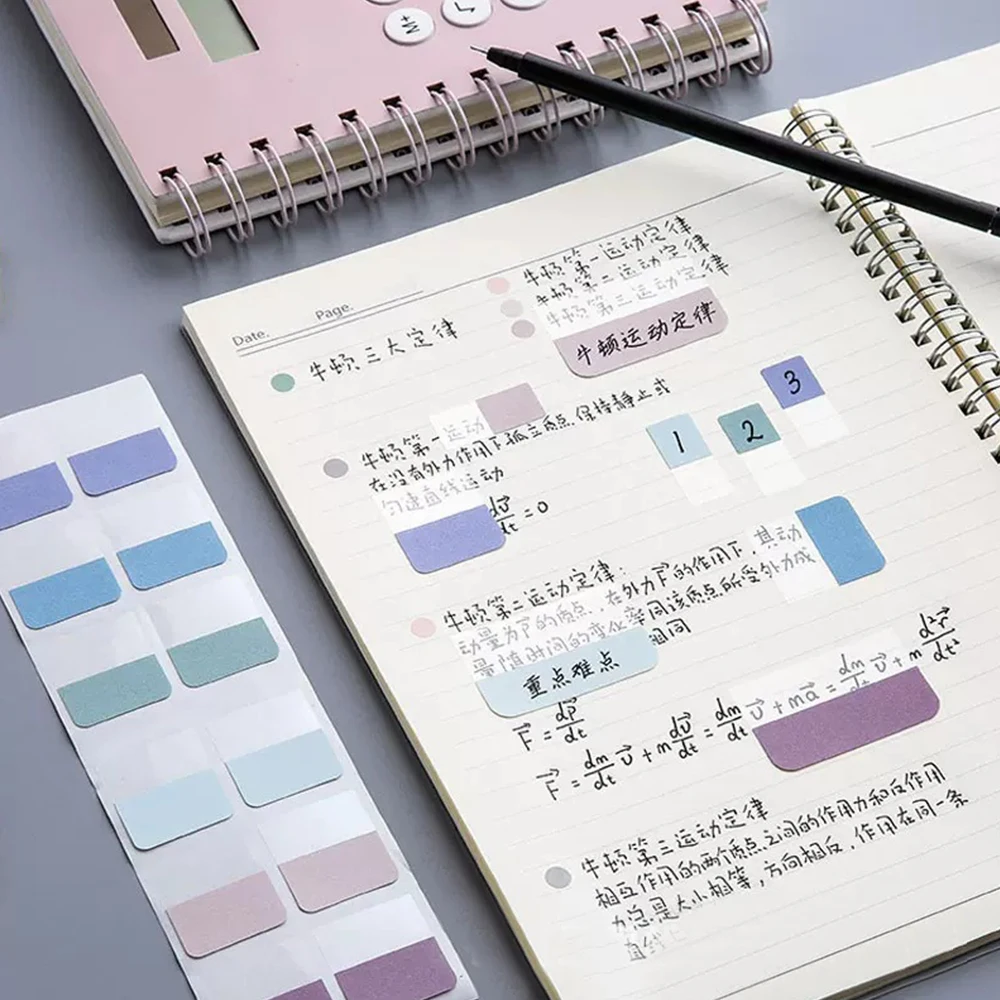 Date.
Page.
牛顿三大定律
牛顿第一运动定律
牛顿第二运动定律
牛顿第三运动定律
牛顿运动定律
1
2
3
牛顿第一运动
在没有外力作用下孤立质点保持静止或
匀速直线运动
dv⃗/dt = 0
牛顿第二运动定律:
动量为p⃗的质点,在外力F⃗的作用下,其动
量随时间的变化率同该质点所受外力成
相同
重点难点
F⃗ = dp⃗/dt
F⃗ = dm/dt v⃗ + m dv⃗/dt = dm/dt v⃗ + ma⃗ = dm/dt v⃗ + m d²r⃗/dt²
牛顿第三运动定律
相互作用的两个质点之间的作用力和反作用
力总是大小相等,方向相反,作用在同一条
直线